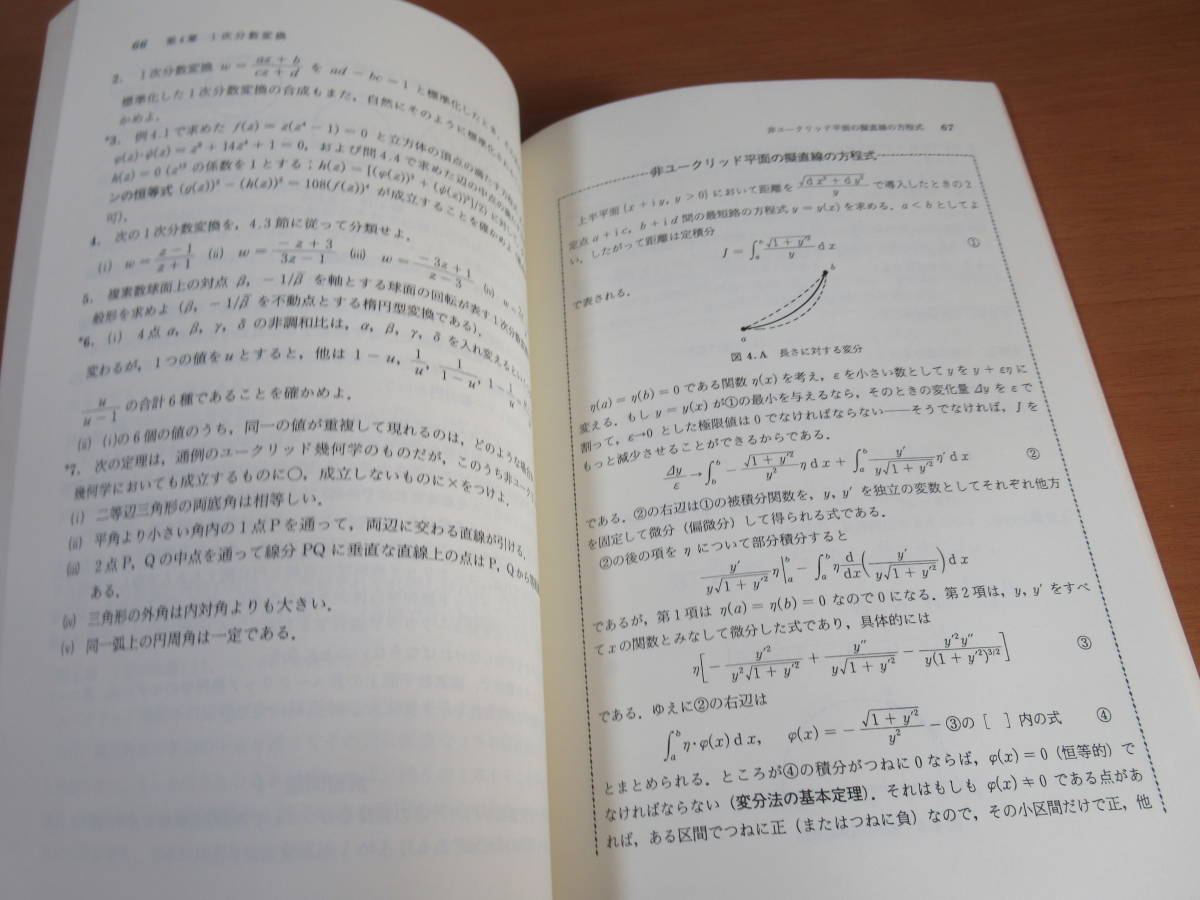 66 第4章 1次分数変換
2. 1次分数変換 w = (az + b)/(cz + d) を ad − bc = 1 と標準化したとき,
標準化した1次分数変換の合成もまた,自然にそのように標準化され
かめよ.
*3. 例4.1で求めた f(z) = z(z⁴ − 1) = 0 と立方体の頂点の満たす方程
φ(z)·ψ(z) = z⁸ + 14z⁴ + 1 = 0, および問4.4で求めた辺の中点の満
h(z) = 0 (z¹² の係数を1とする; h(z) = [(φ(z))³ + (ψ(z))³]/2) に対し
ンの恒等式 (g(z))³ − (h(z))² = 108(f(z))⁴ が成立することを確かめよ
可).
4. 次の1次分数変換を, 4.3節に従って分類せよ.
(i) w = (z − 1)/(z + 1) (ii) w = (−z + 3)/(3z − 1) (iii) w = (−3z + 1)/(z − 3)
5. 複素数球面上の対点 β, −1/β̄ を軸とする球面の回転が表す1次分数
般形を求めよ (β, −1/β̄ を不動点とする楕円型変換である).
*6. (i) 4点 α, β, γ, δ の非調和比は, α, β, γ, δ を入れ変えると
変わるが, 1つの値を u とすると, 他は 1 − u, 1/u, 1/(1 − u), 1 − 1/u
u/(u − 1) の合計6種であることを確かめよ.
(ii) (i)の6個の値のうち, 同一の値が重複して現れるのは, どのような場合
*7. 次の定理は, 通例のユークリッド幾何学のものだが, このうち非ユーク
幾何学においても成立するものに○, 成立しないものに×をつけよ.
(i) 二等辺三角形の両底角は相等しい.
(ii) 平角より小さい角内の1点Pを通って, 両辺に交わる直線が引ける.
(iii) 2点P, Qの中点を通って線分PQに垂直な直線上の点はP, Qから
ある.
(iv) 三角形の外角は内対角よりも大きい.
(v) 同一弧上の円周角は一定である.
非ユークリッド平面の擬直線の方程式 67
非ユークリッド平面の擬直線の方程式
上半平面 {x + iy, y > 0} において距離を √(dx² + dy²)/y で導入したときの2
定点 a + ic, b + id 間の最短路の方程式 y = y(x) を求める. a < b としてよ
い. したがって距離は定積分
J = ∫ₐᵇ √(1 + y′²)/y dx ①
で表される.
b
a
図4.A 長さに対する変分
η(a) = η(b) = 0 である関数 η(x) を考え, ε を小さい数として y を y + εη に
変える. もし y = y(x) が①の最小を与えるなら, そのときの変化量 Δy を ε で
割って, ε→0 とした極限値は0でなければならない——そうでなければ, J を
もっと減少させることができるからである.
Δy/ε → ∫_b^b − √(1 + y′²)/y² η dx + ∫ₐᵇ y′/(y√(1 + y′²)) η′ dx ②
である. ②の右辺は①の被積分関数を, y, y′ を独立の変数としてそれぞれ他方
を固定して微分(偏微分)して得られる式である.
②の後の項を η について部分積分すると
y′/(y√(1 + y′²)) η|ₐᵇ − ∫ₐᵇ η d/dx (y′/(y√(1 + y′²))) dx
であるが, 第1項は η(a) = η(b) = 0 なので0になる. 第2項は, y, y′ をすべ
て x の関数とみなして微分した式であり, 具体的には
η[− y′²/(y²√(1 + y′²)) + y″/(y√(1 + y′²)) − y′²y″/(y(1 + y′²)^{3/2})] ③
である. ゆえに②の右辺は
∫ₐᵇ η·φ(x) dx, φ(x) = − √(1 + y′²)/y² − ③の [ ] 内の式 ④
とまとめられる. ところが④の積分がつねに0ならば, φ(x) = 0 (恒等的)で
なければならない(変分法の基本定理). それはもしも φ(x) ≠ 0 である点があ
れば, ある区間でつねに正(またはつねに負)なので, その小区間だけで正, 他